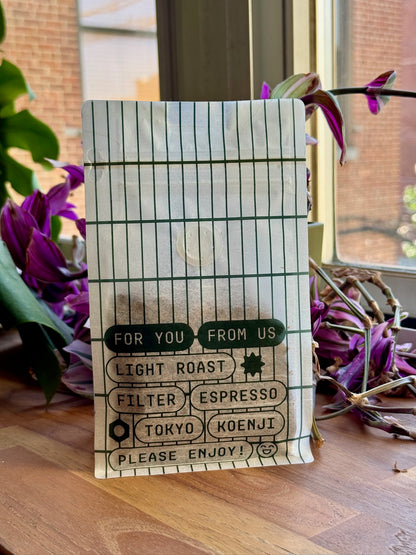 FOR YOU FROM US
LIGHT ROAST
FILTER ESPRESSO
TOKYO KOENJI
PLEASE ENJOY!